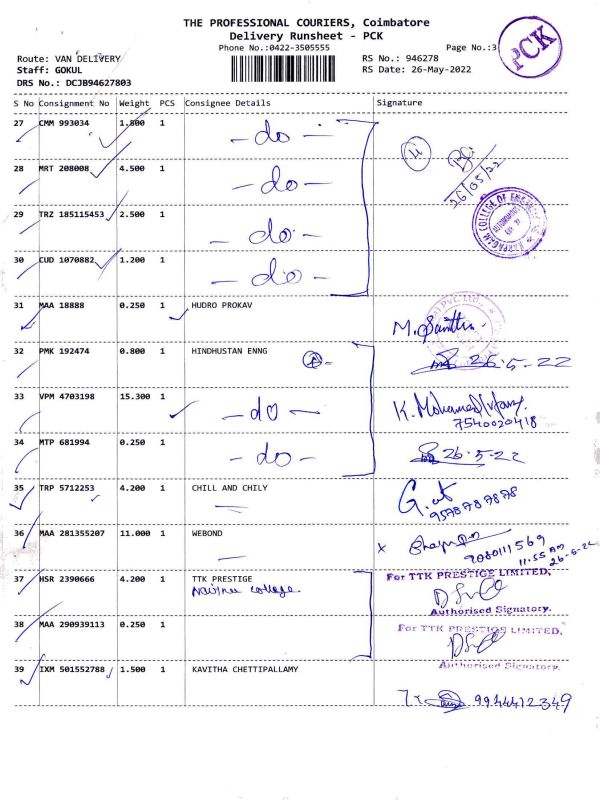 THE PROFESSIONAL COURIERS, Coimbatore
Delivery Runsheet - PCK
Phone No.:0422-3505555
Page No.:3
PCK
Route: VAN DELIVERY
RS No.: 946278
Staff: GOKUL
RS Date: 26-May-2022
DRS No.: DCJB94627803
S No Consignment No Weight PCS Consignee Details Signature
27 CMM 993034 1.800 1 -do-
4
26/05/22
28 MRT 208008 4.500 1 -do-
29 TRZ 185115453 2.500 1 -do-
30 CUD 1070882 1.200 1 -do-
31 MAA 18888 0.250 1 HUDRO PROKAV
32 PMK 192474 0.800 1 HINDHUSTAN ENNG 26-5-22
33 VPM 4703198 15.300 1 -do- K. Mohamed
7540020418
34 MTP 681994 0.250 1 -do- 26-5-22
35 TRP 5712253 4.200 1 CHILL AND CHILY
9578787878
36 MAA 281355207 11.000 1 WEBOND
11.55 AM
37 HSR 2390666 4.200 1 TTK PRESTIGE For TTK PRESTIGE LIMITED,
college.
Authorised Signatory.
38 MAA 290939113 0.250 1 For TTK PRESTIGE LIMITED,
Authorised Signatory.
39 IXM 501552788 1.500 1 KAVITHA CHETTIPALLAMY
9944412349